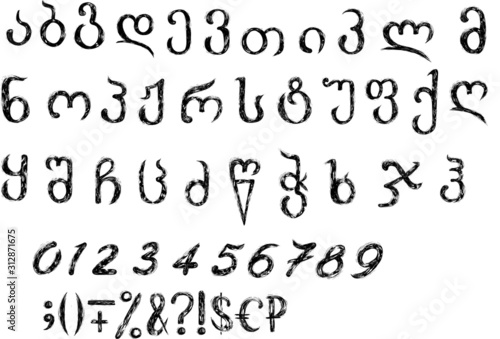 აბგდევთიკლმ
ნოპჟრსტუფქღ
ყშჩცძწჭხჯჰ
0123456789
;()∓%&?!$€₽
Adobe Stock | #312871675